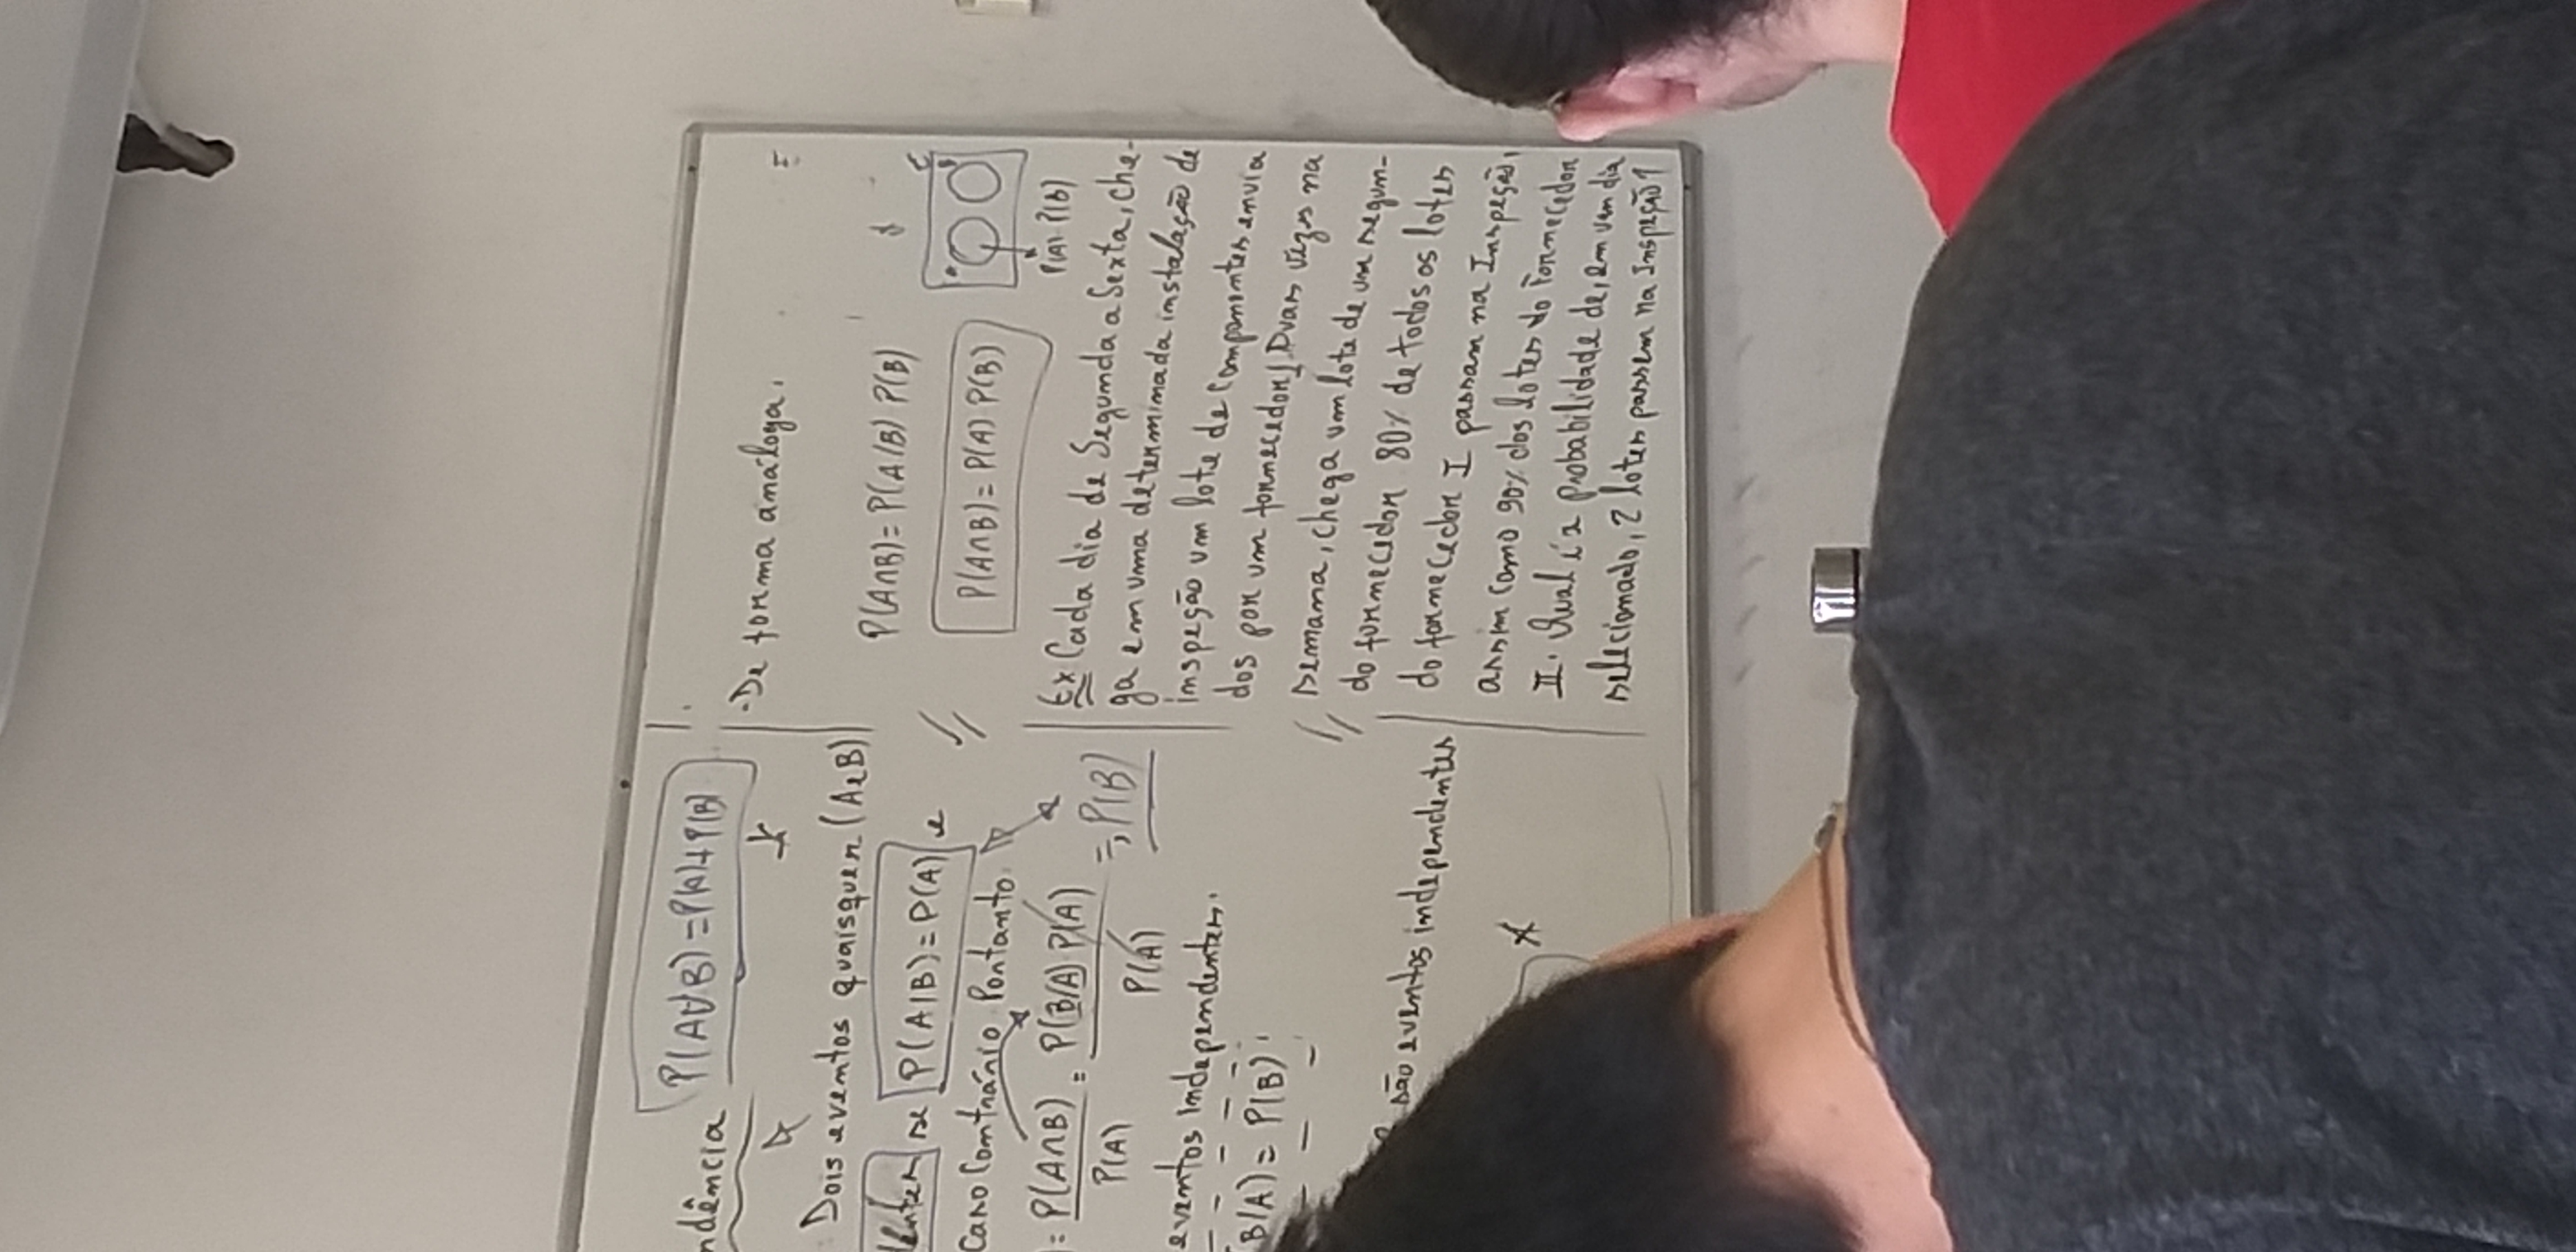 ndência P(A∪B)=P(A)+P(B)
Dois eventos quaisquer (A e B)
se P(A|B)=P(A) e
Caso Contrário, Portanto
= P(A∩B)/P(A) = P(B/A) P(A)/P(A) =, P(B)
eventos independentes.
B/A) = P(B)
são eventos independentes
- De forma análoga.
P(A∩B)= P(A/B) P(B)
P(A∩B)= P(A) P(B)
P(A) P(B)
Ex Cada dia de Segunda a Sexta, che-
ga em uma determinada instalação de
inspeção um lote de componentes envia
dos por um fornecedor. Duas vezes na
semana, chega um lote de um segun-
do fornecedor 80% de todos os lotes
do fornecedor I passam na Inspeção,
assim como 90% dos lotes do Fornecedor
II. Qual é a probabilidade de, em um dia
selecionado, 2 lotes passem na Inspeção?